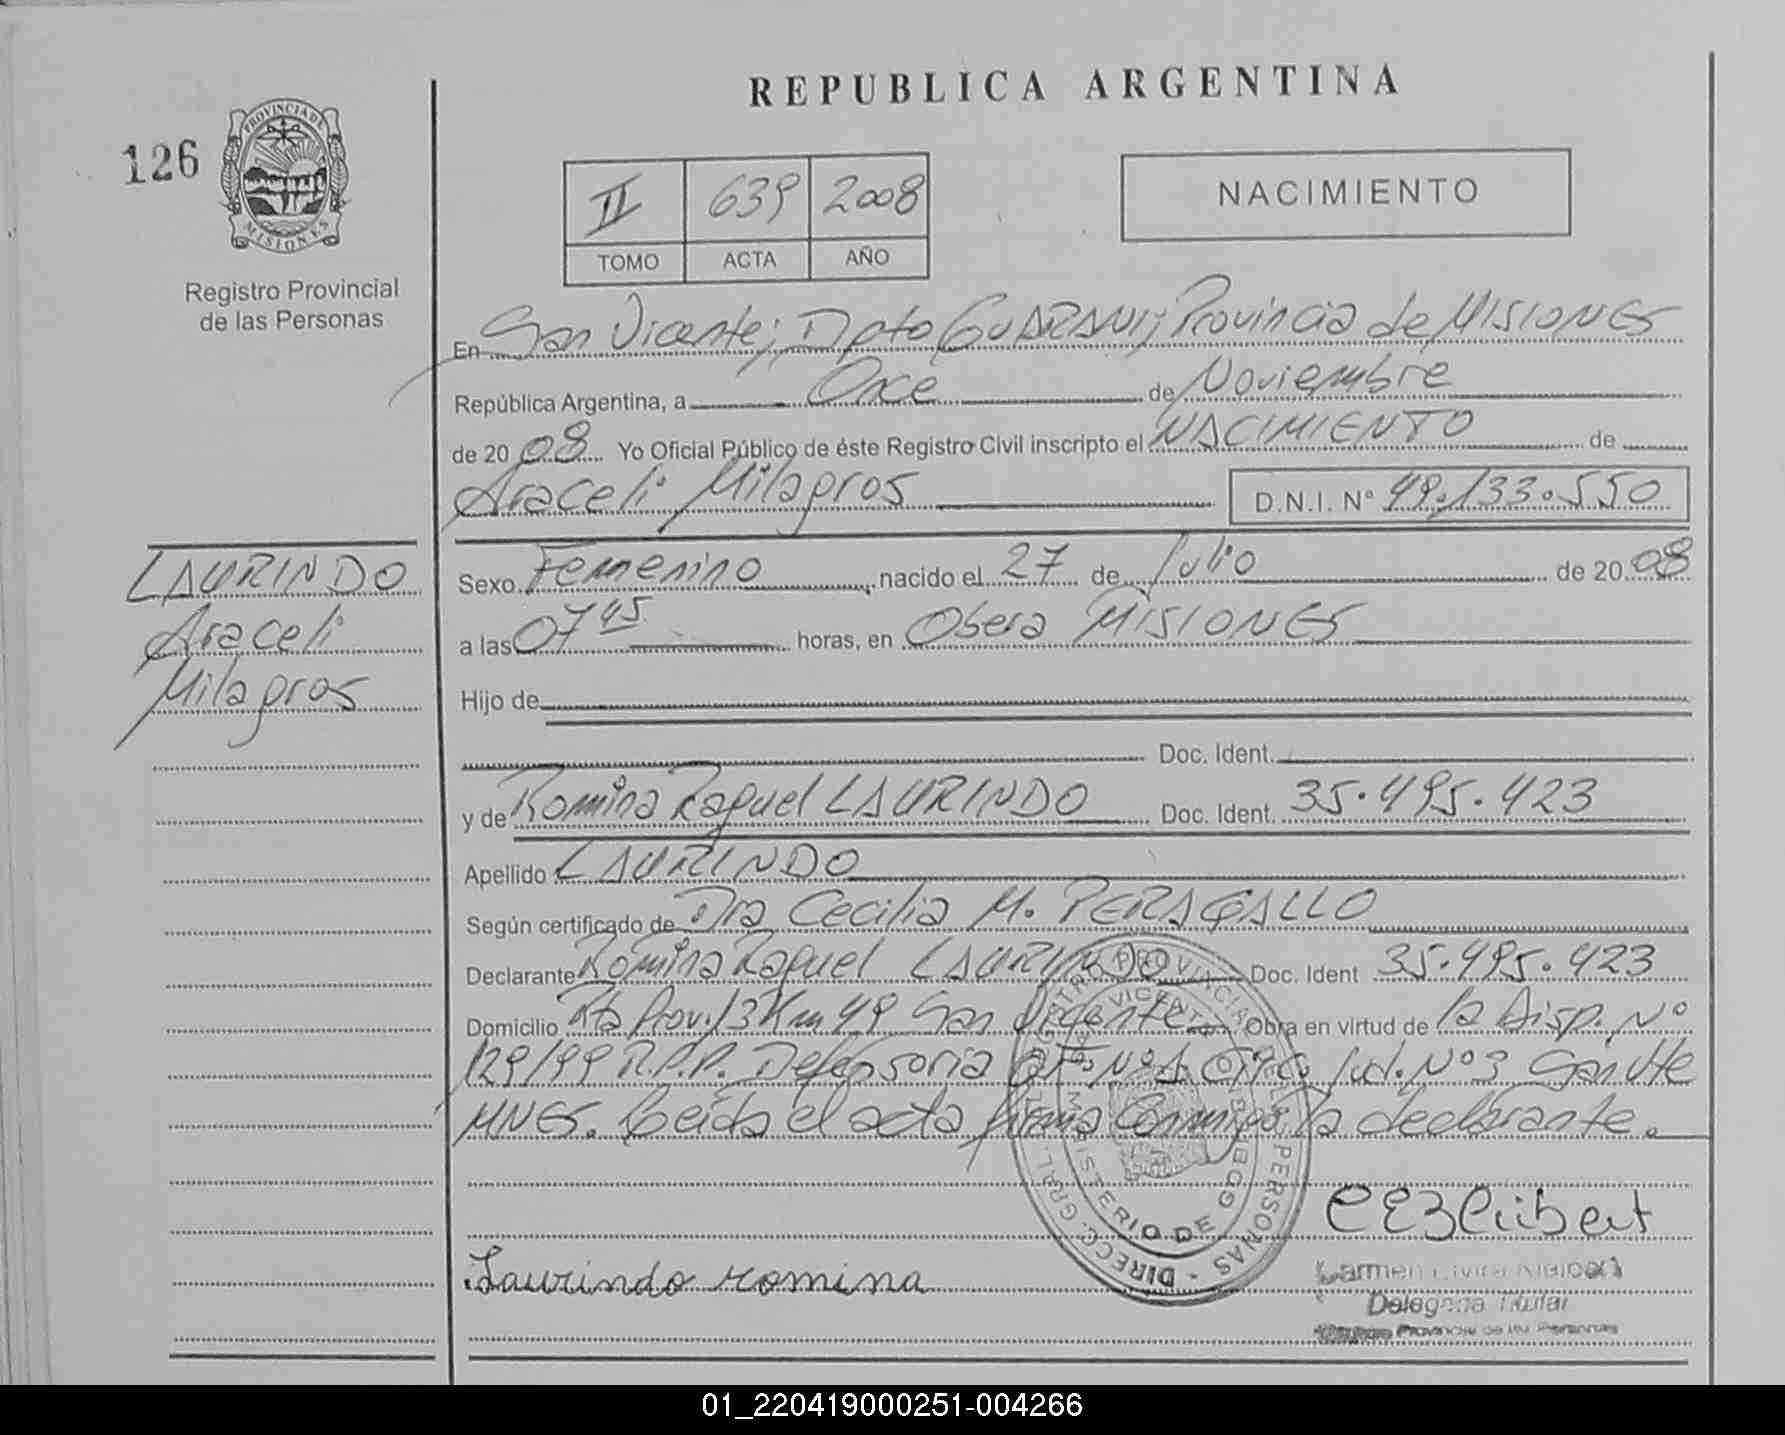 REPUBLICA ARGENTINA
126
PROVINCIA DE
MISIONES
Registro Provincial
de las Personas
II 639 2008
TOMO ACTA AÑO
NACIMIENTO
En San Vicente; Dpto GUARANI; Provincia de MISIONES
República Argentina, a Once de Noviembre
de 2008 Yo Oficial Público de éste Registro Civil inscripto el NACIMIENTO de
Araceli Milagros D.N.I. Nº 49.133.550
LAURINDO
Araceli
Milagros
Sexo Femenino, nacido el 27 de Julio de 2008
a las 07 45 horas, en Obera MISIONES
Hijo de
Doc. Ident.
y de Romina Raquel LAURINDO Doc. Ident. 35.495.423
Apellido LAURINDO
Según certificado de Dra Cecilia M. PERAGALLO
Declarante Romina Raquel LAURINDO Doc. Ident 35.495.423
Domicilio Rta Prov. 13 Km 49 San Vicente Obra en virtud de la Disp. Nº
129/99 R.P.P. Defensoria Nº1 Jud. Nº3 San Vte
MNES. Leida el acta firma conmigo la declarante.
Laurindo romina
Delegada Titular
Provincial de las Personas
01_220419000251-004266